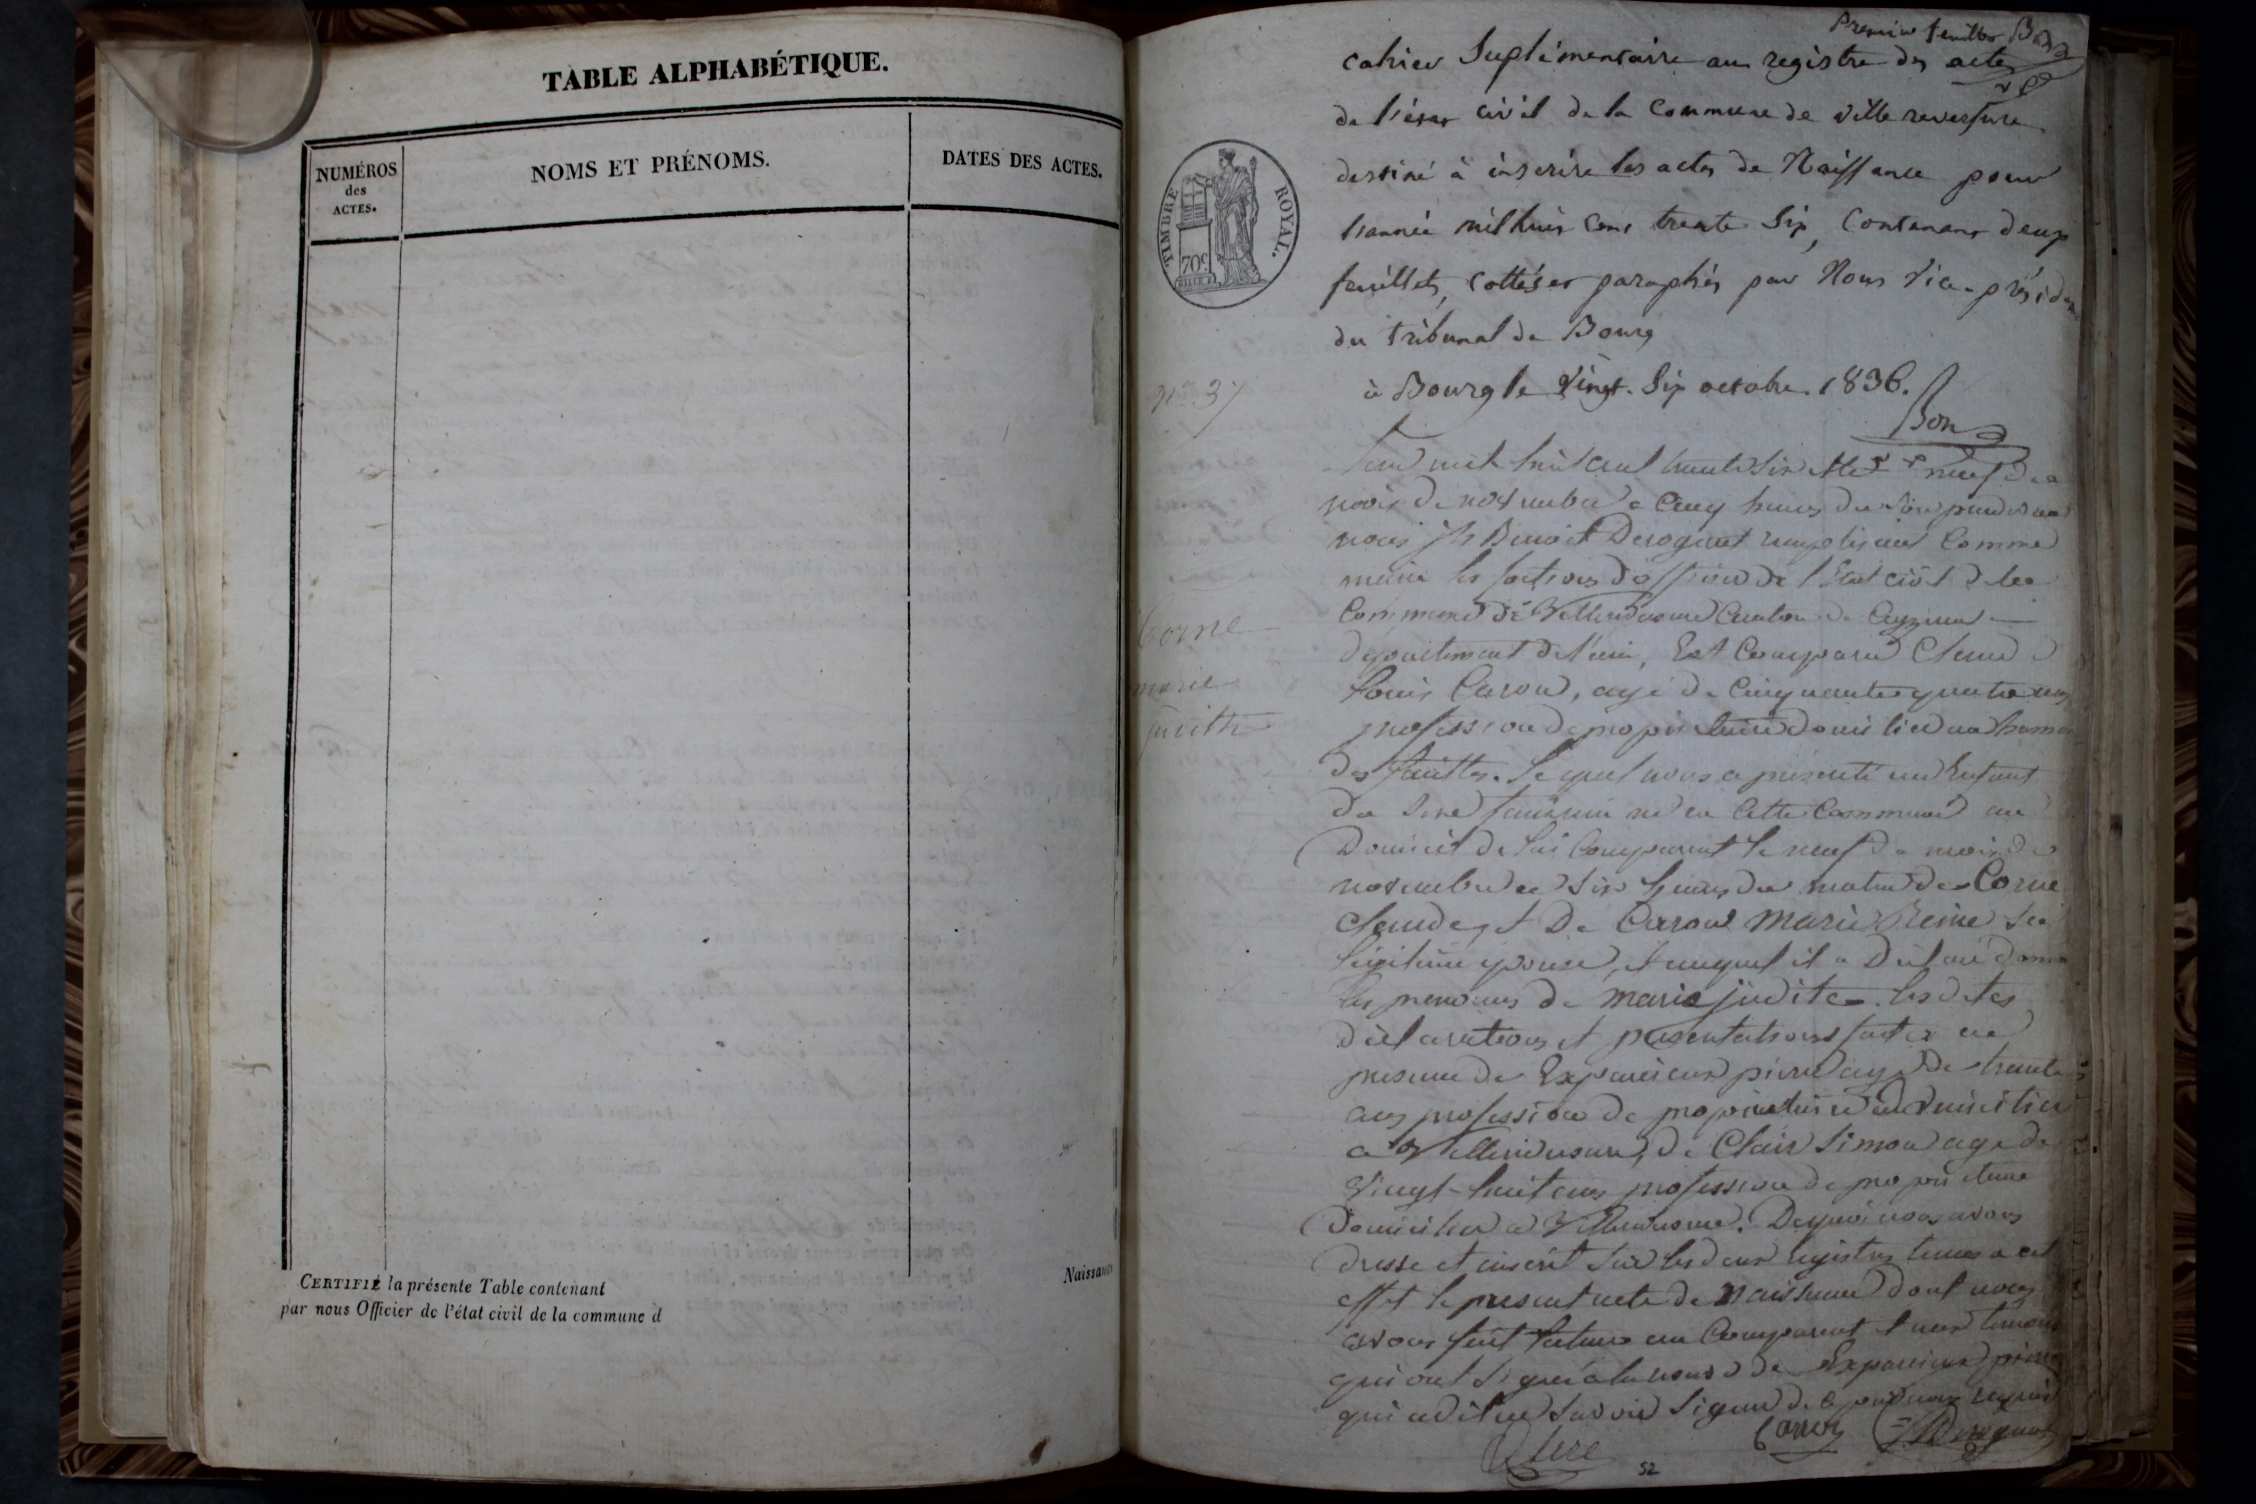 TABLE ALPHABÉTIQUE.
NUMÉROS
des
ACTES.
NOMS ET PRÉNOMS.
DATES DES ACTES.
CERTIFIÉ la présente Table contenant
par nous Officier de l'état civil de la commune d
Naissances
Premier feuillet Bon
cahier Suplémentaire au registre des actes
de l'état civil de la Commune de Villereversure
destiné à inscrire les actes de Naissance pour
l'année mil huit cent trente Six, Contenant deux
feuillets, cottés et paraphés par Nous Vice-présid
du tribunal de Bourg
à Bourg le Vingt-Six octobre 1836.
Bon
TIMBRE ROYAL.
70c
N° 37
Corne
marie
judith
L'an mil huit cent trente Six et le neuf du
mois de novembre a Cinq heures du Soir pardevant
nous Benoit Derognat remplissant Comme
maire les fonctions d'officier de l'Etat civil de la
Commune de Villereversure Canton de Ceyzeriat
département de l'ain, Est Comparu Claude
Louis Caron, agé de Cinquante quatre ans
profession de propriétaire domicilié au hameau
des . Lequel nous a présenté un Enfant
du Sexe féminin né en Cette Commune au
Domicile de lui Comparant le neuf du mois de
novembre a Six heures du matin de Corne
Claude, et De Caron Marie Reine Sa
légitime épouse, et auquel il a Déclaré donner
les prénoms de marie judite. lesdites
déclarations et présentations faites en
présence de pierre agé de trente
ans profession de propriétaire domicilié
a Villereversure, De Clair Simon agé de
Vingt-huit ans profession de propriétaire
Domicilié a Villereversure. De quoi nous avons
dressé et inscrit Sur les deux registres tenus a cet
effet le présent acte de naissance dont nous
avons fait lecture au Comparant et aux témoins
qui ont Signé a la de pierre
qui a dit ne Savoir Signer de ce requis
Clere
Caron
Derognat
52